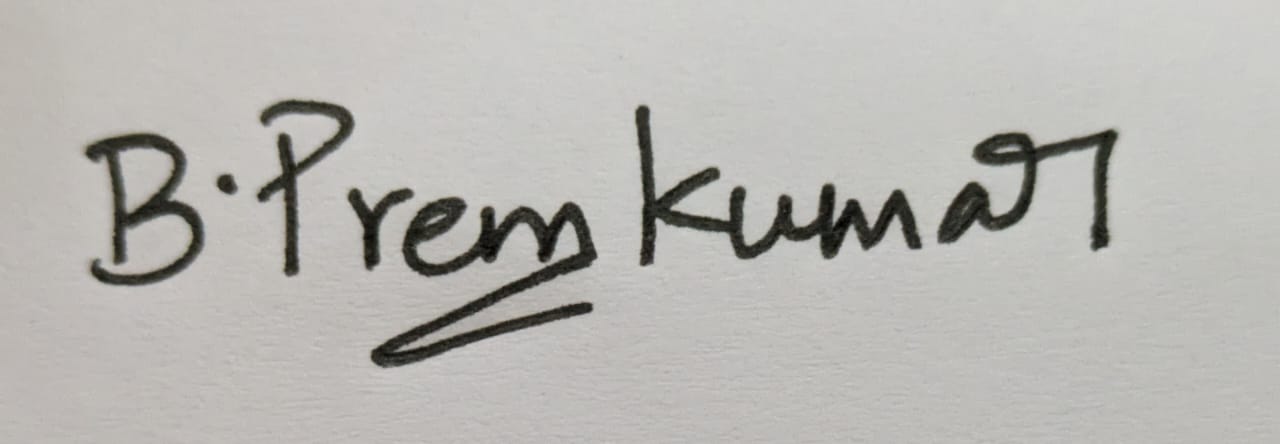 B. Prem Kumar